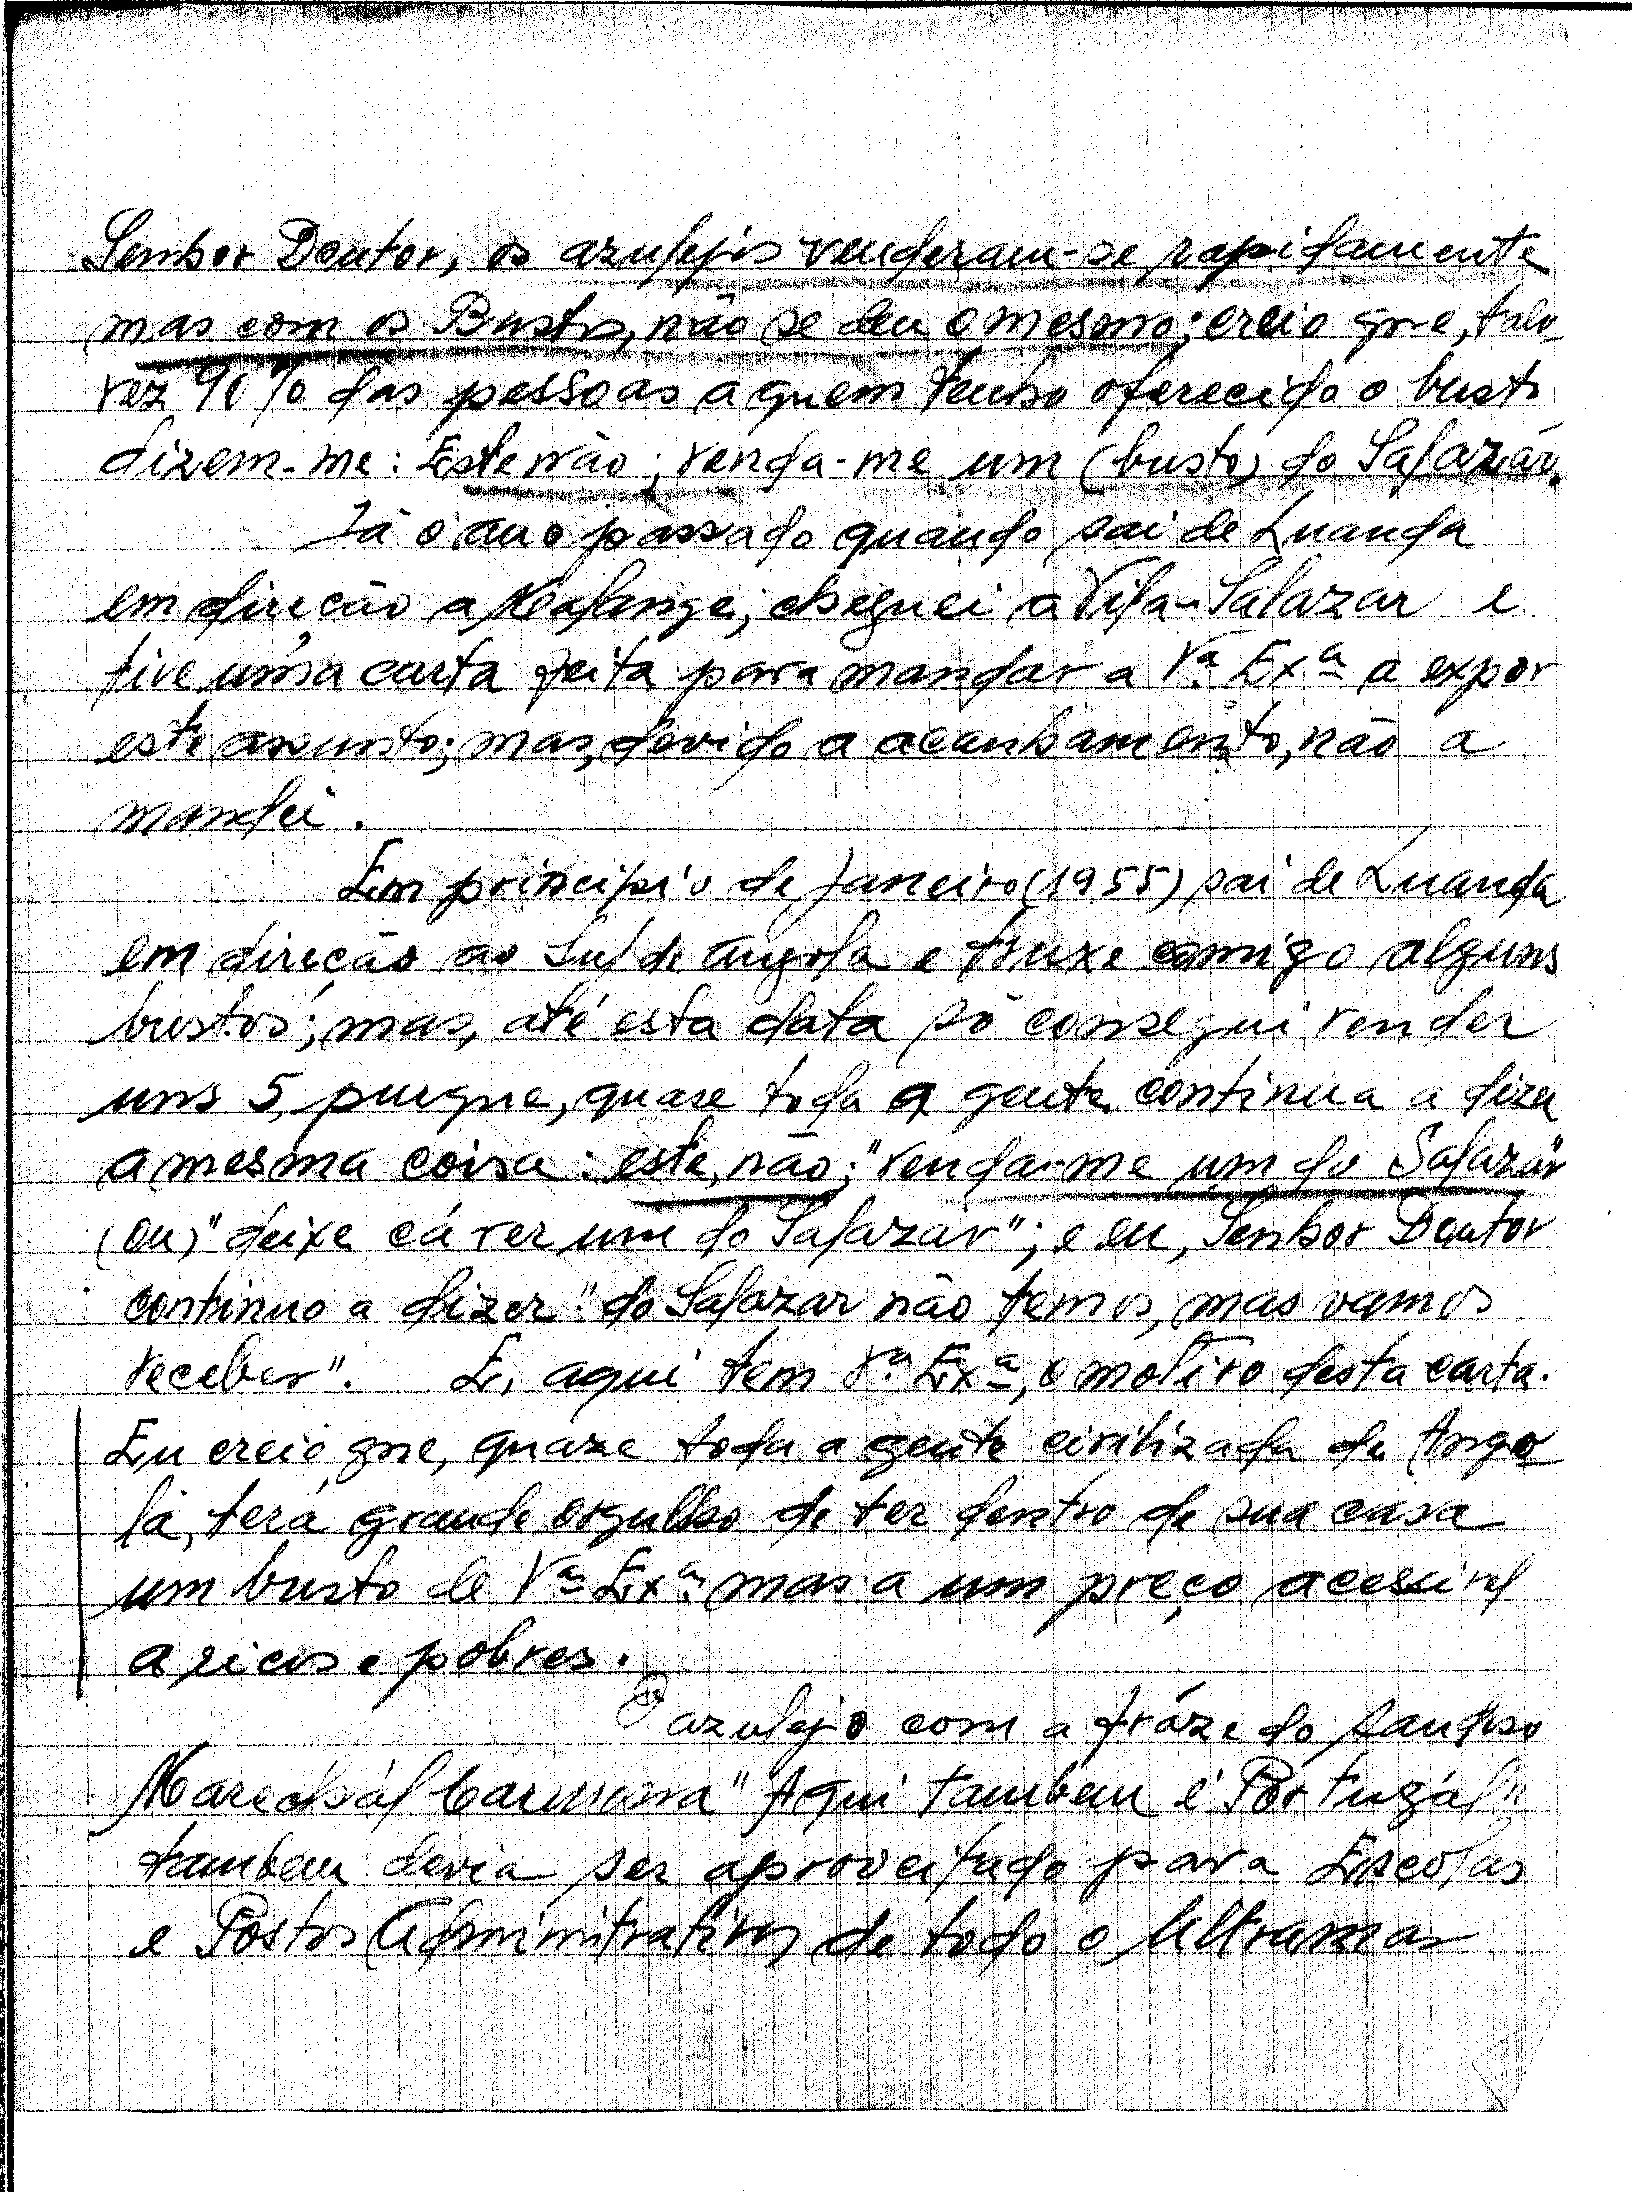 Senhor Doutor, os azulejos venderam-se rapidamente
mas com os Bustos, não se deu o mesmo; creio que, tal-
vez 90% das pessoas a quem tenho oferecido o busto
dizem-me: Este não; venda-me um (busto) do Salazár.
Já o ano passado quando sai de Luanda
em direcão a Malange, cheguei a Vila-Salazar e
tive uma carta feita para mandar a Vª Exª a expor
este assunto; mas, devido a acanhamento, não a
mandei.
Em principio de Janeiro (1955) sai de Luanda
em direcão ao Sul de Angola e truxe comigo alguns
bustos; mas, até esta data só consegui vender
uns 5, purque, quase toda a gente continua a dizer
a mesma coisa: este, não; "venda-me um do Salazár"
(ou) "deixe cá ver um do Salazar"; e eu, Senhor Doutor
continuo a dizer "do Salazar não temos, mas vamos
receber". E, aqui tem Vª Exª, o motivo desta carta.
Eu creio que, quaze toda a gente civilizada de Ango
la, terá grande orgulho de ter dentro de sua casa
um busto de Vª Exª mas a um preço acessivel
a ricos e pobres.
O azulejo com a fráze do saudoso
Marechál Carmona "Aqui tambem é Portugál"
tambem devia ser aproveitado para Escolas
e Postos Administrativos de todo o Ultramar